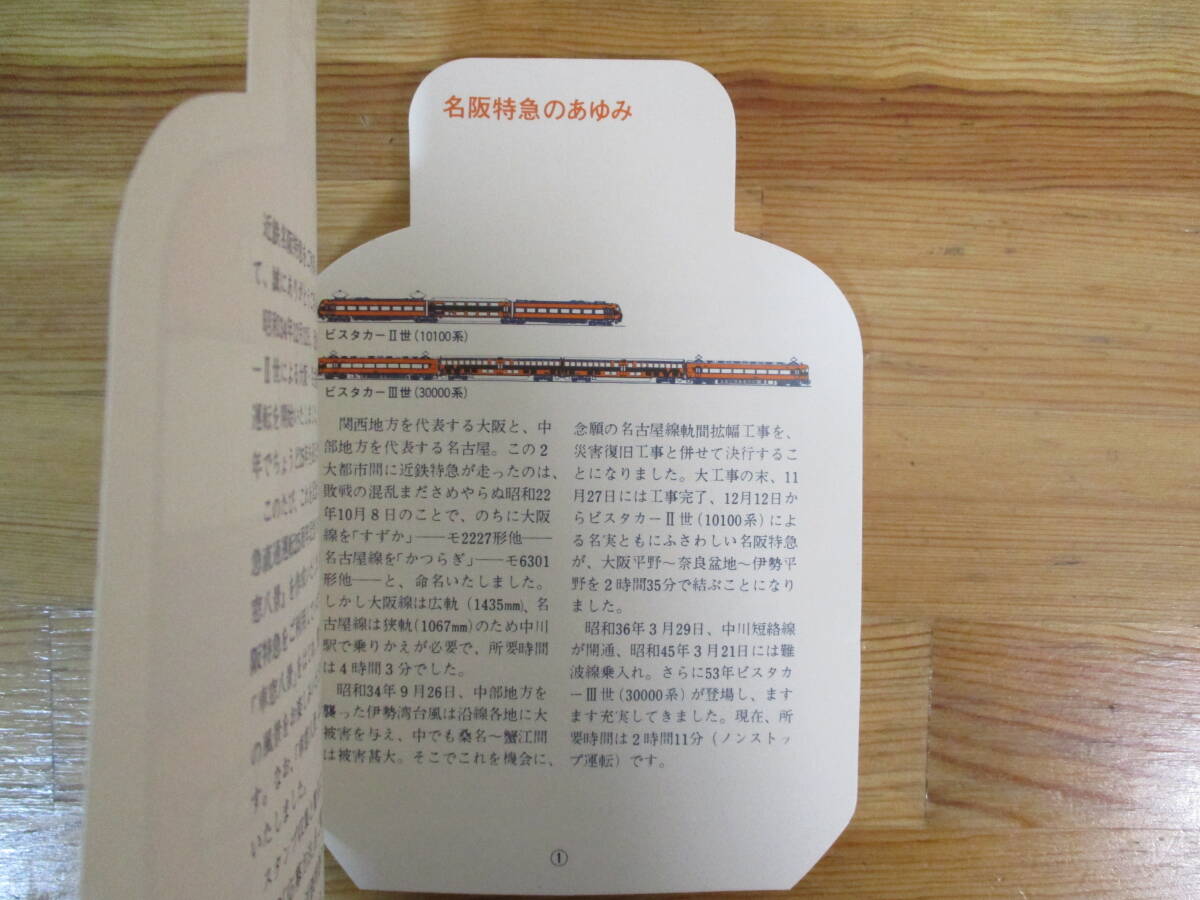 名阪特急のあゆみ
ビスタカーⅡ世(10100系)
ビスタカーⅢ世(30000系)
関西地方を代表する大阪と、中
部地方を代表する名古屋。この2
大都市間に近鉄特急が走ったのは、
敗戦の混乱まださめやらぬ昭和22
年10月8日のことで、のちに大阪
線を「すずか」――モ2227形他――
名古屋線を「かつらぎ」――モ6301
形他――と、命名いたしました。
しかし大阪線は広軌(1435mm)、名
古屋線は狭軌(1067mm)のため中川
駅で乗りかえが必要で、所要時間
は4時間3分でした。
昭和34年9月26日、中部地方を
襲った伊勢湾台風は沿線各地に大
被害を与え、中でも桑名～蟹江間
は被害甚大。そこでこれを機会に、
念願の名古屋線軌間拡幅工事を、
災害復旧工事と併せて決行するこ
とになりました。大工事の末、11
月27日には工事完了、12月12日か
らビスタカーⅡ世(10100系)によ
る名実ともにふさわしい名阪特急
が、大阪平野～奈良盆地～伊勢平
野を2時間35分で結ぶことになり
ました。
昭和36年3月29日、中川短絡線
が開通、昭和45年3月21日には難
波線乗入れ。さらに53年ビスタカ
ーⅢ世(30000系)が登場し、ます
ます充実してきました。現在、所
要時間は2時間11分(ノンストッ
プ運転)です。
①
て、誠にありがとう
ーⅡ世による
運転を開始いたしまし
年でちょうど25
このたび、これを
の風景をお楽し
す。なお、
いたしました。
スタンプ